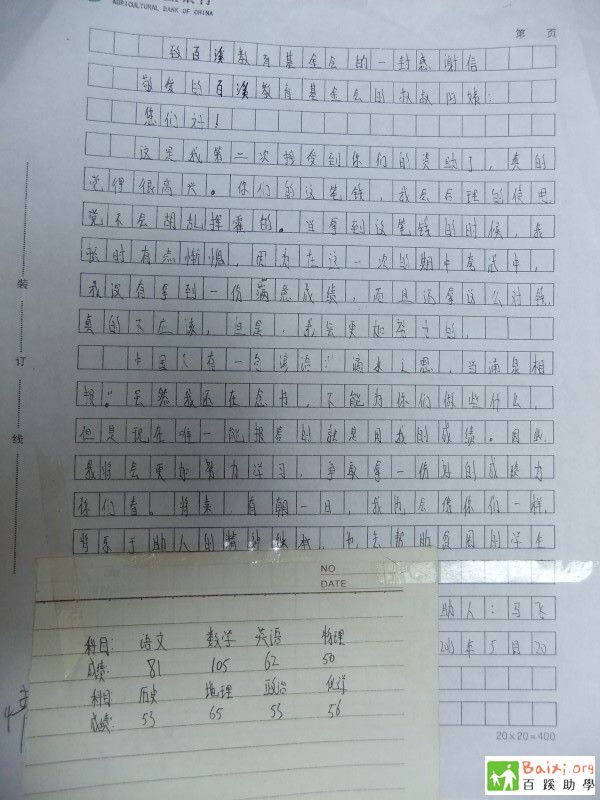 AGRICULTURAL BANK OF CHINA
第 页
致百溪教育基金会的一封感谢信
敬爱的百溪教育基金会的叔叔阿姨:
您们好!
这是我第二次接受到你们的资助了,真的
觉得很高兴。你们的这笔钱,我会合理的使用
觉不会胡乱挥霍的。当拿到这笔钱的时候,我
时有点惭愧,因为在这一次的期中考试中,
我没有拿到一份满意成绩,而且还拿这么多钱
真的不应该,但是,我会更加努力的,
中国人有一句谚语:滴水之恩,当涌泉相
报。”虽然我还在念书,不能为你们做些什么,
但是现在唯一能报答的就是用我的成绩。因此
我将会更加努力学习,争取拿一份好的成绩为
你们看。将来,有朝一日,我也会像你们一样,
将乐于助人的精神继承,也去帮助贫困的学生
助人:马飞
年5月20
装
订
线
NO
DATE
科目: 语文 数学 英语 物理
成绩: 81 105 62 50
科目: 历史 地理 政治 化学
成绩: 53 65 53 56
20×20=400
Baixi.org
百蹊助學